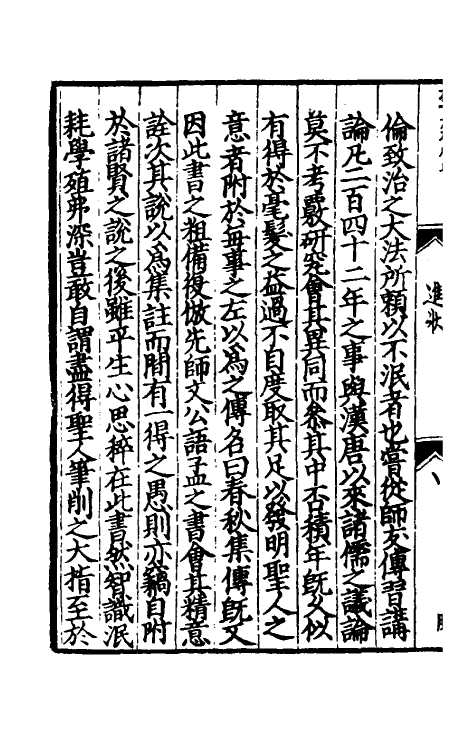 進狀
倫致治之大法所賴以不泯者也嘗從師友傳習講
論凡二百四十二年之事與漢唐以來諸儒之議論
莫不考覈研究會其異同而叅其中否積年旣久似
有得於毫髮之益過不自度取其足以發明聖人之
意者附於每事之左以爲之傳名曰春秋集傳旣又
因此書之粗備復倣先師文公語孟之書會其精意
詮次其說以爲集註而閒有一得之愚則亦竊自附
於諸賢之說之後雖平生心思粹在此書然智識泯
耗學殖弗深豈敢自謂盡得聖人筆削之大指至於